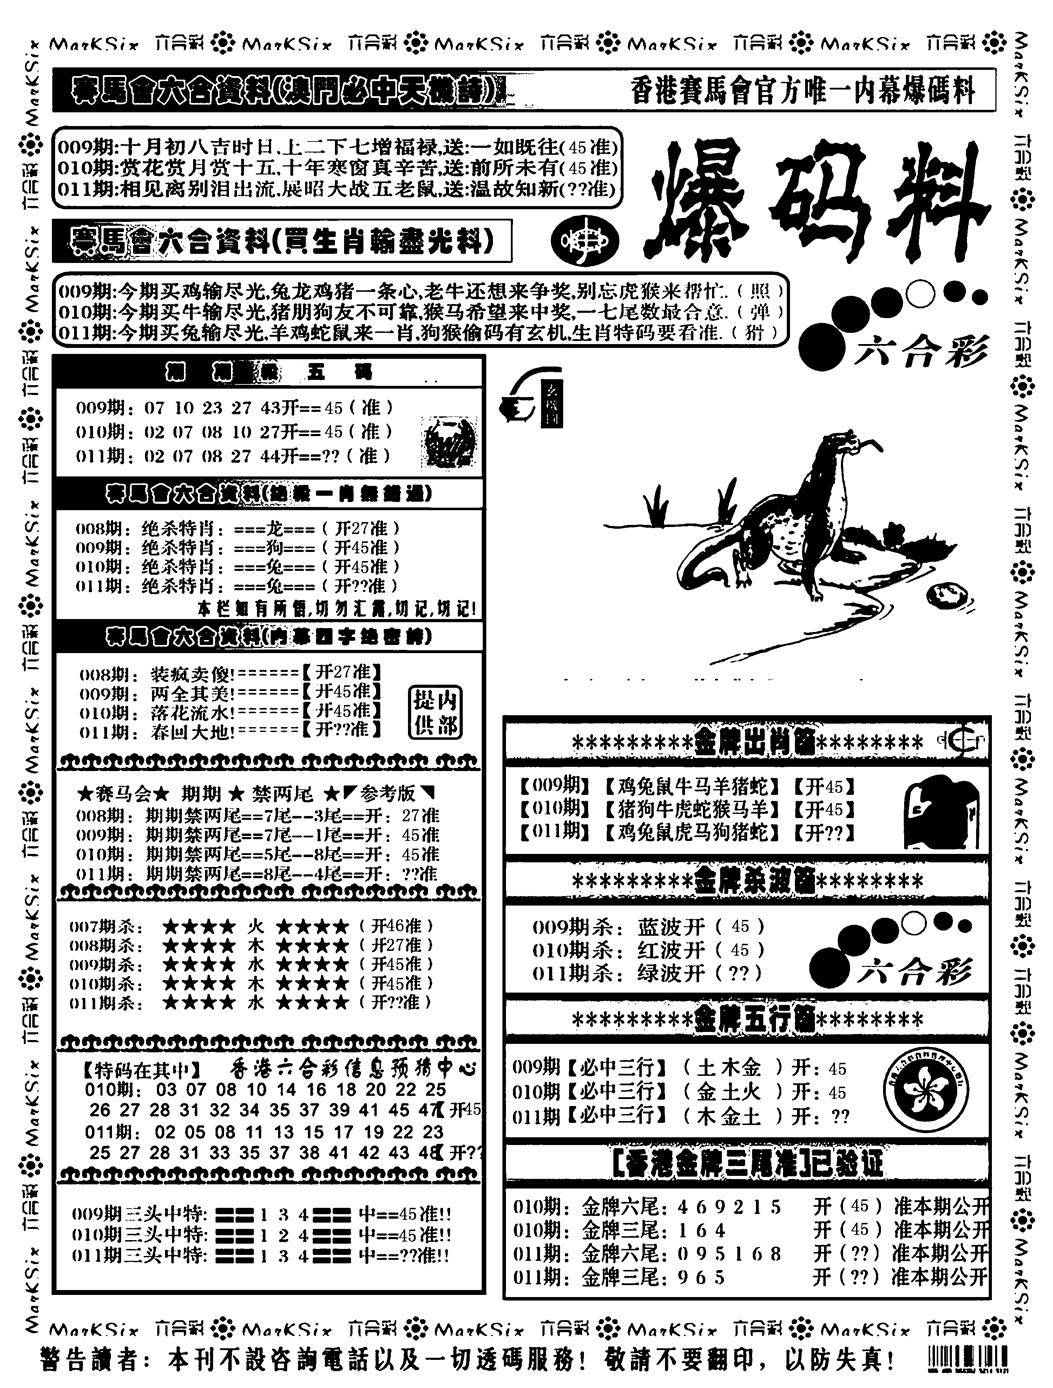 MarKSix 六合彩 MarKSix 六合彩 MarKSix 六合彩 MarKSix 六合彩 MarKSix 六合彩
賽馬會六合資料(澳門必中天機詩)
香港賽馬會官方唯一内幕爆碼料
009期:十月初八吉时日,上二下七增福禄,送:一如既往(45准)
010期:赏花赏月赏十五,十年寒窗真辛苦,送:前所未有(45准)
011期:相见离别泪出流,展昭大战五老鼠,送:温故知新(??准)
爆码料
賽馬會六合資料(買生肖輸盡光料)
009期:今期买鸡输尽光,兔龙鸡猪一条心,老牛还想来争奖,别忘虎猴来帮忙.(照)
010期:今期买牛输尽光,猪朋狗友不可靠,猴马希望来中奖,一七尾数最合意.(弹)
011期:今期买兔输尽光,羊鸡蛇鼠来一肖,狗猴偷码有玄机,生肖特码要看准.(猾)
六合彩
期期殺五碼
009期: 07 10 23 27 43开==45(准)
010期: 02 07 08 10 27开==45(准)
011期: 02 07 08 27 44开==??(准)
賽馬會六合資料(绝殺一肖無錯過)
008期: 绝杀特肖: ===龙===(开27准)
009期: 绝杀特肖: ===狗===(开45准)
010期: 绝杀特肖: ===兔===(开45准)
011期: 绝杀特肖: ===兔===(开??准)
本栏如有所悟,切勿汇露,切记,切记!
賽馬會六合資料(内幕四字绝密詩)
008期: 装疯卖傻!======【开27准】
009期: 两全其美!======【开45准】
010期: 落花流水!======【开45准】
011期: 春回大地!======【开??准】
内部提供
★赛马会★ 期期 ★ 禁两尾 ★◤参考版◥
008期: 期期禁两尾==7尾--3尾==开: 27准
009期: 期期禁两尾==7尾--1尾==开: 45准
010期: 期期禁两尾==5尾--8尾==开: 45准
011期: 期期禁两尾==8尾--4尾==开: ??准
007期杀: ★★★★ 火 ★★★★(开46准)
008期杀: ★★★★ 木 ★★★★(开27准)
009期杀: ★★★★ 水 ★★★★(开45准)
010期杀: ★★★★ 木 ★★★★(开45准)
011期杀: ★★★★ 水 ★★★★(开??准)
【特码在其中】 香港六合彩信息预猜中心
010期: 03 07 08 10 14 16 18 20 22 25
26 27 28 31 32 34 35 37 39 41 45 47【开45
011期: 02 05 08 11 13 15 17 19 22 23
25 27 28 31 33 35 37 38 41 42 43 48【开??
009期三头中特: 〓〓 1 3 4 〓〓 中==45准!!
010期三头中特: 〓〓 1 2 4 〓〓 中==45准!!
011期三头中特: 〓〓 1 3 4 〓〓 中==??准!!
玄机图
*********金牌出肖篇********
【009期】【鸡兔鼠牛马羊猪蛇】【开45】
【010期】【猪狗牛虎蛇猴马羊】【开45】
【011期】【鸡兔鼠虎马狗猪蛇】【开??】
*********金牌杀波篇********
009期杀: 蓝波开( 45 )
010期杀: 红波开( 45 )
011期杀: 绿波开( ?? )
六合彩
*********金牌五行篇********
009期【必中三行】(土木金 )开: 45
010期【必中三行】(金土火 )开: 45
011期【必中三行】(木金土 )开: ??
[香港金牌三尾准]已验证
010期: 金牌六尾: 4 6 9 2 1 5 开(45) 准本期公开
010期: 金牌三尾: 1 6 4 开(45) 准本期公开
011期: 金牌六尾: 0 9 5 1 6 8 开(??) 准本期公开
011期: 金牌三尾: 9 6 5 开(??) 准本期公开
MarKSix 六合彩 MarKSix 六合彩 MarKSix 六合彩 MarKSix 六合彩 MarKSix 六合彩
警告讀者: 本刊不設咨詢電話以及一切透碼服務! 敬請不要翻印, 以防失真!